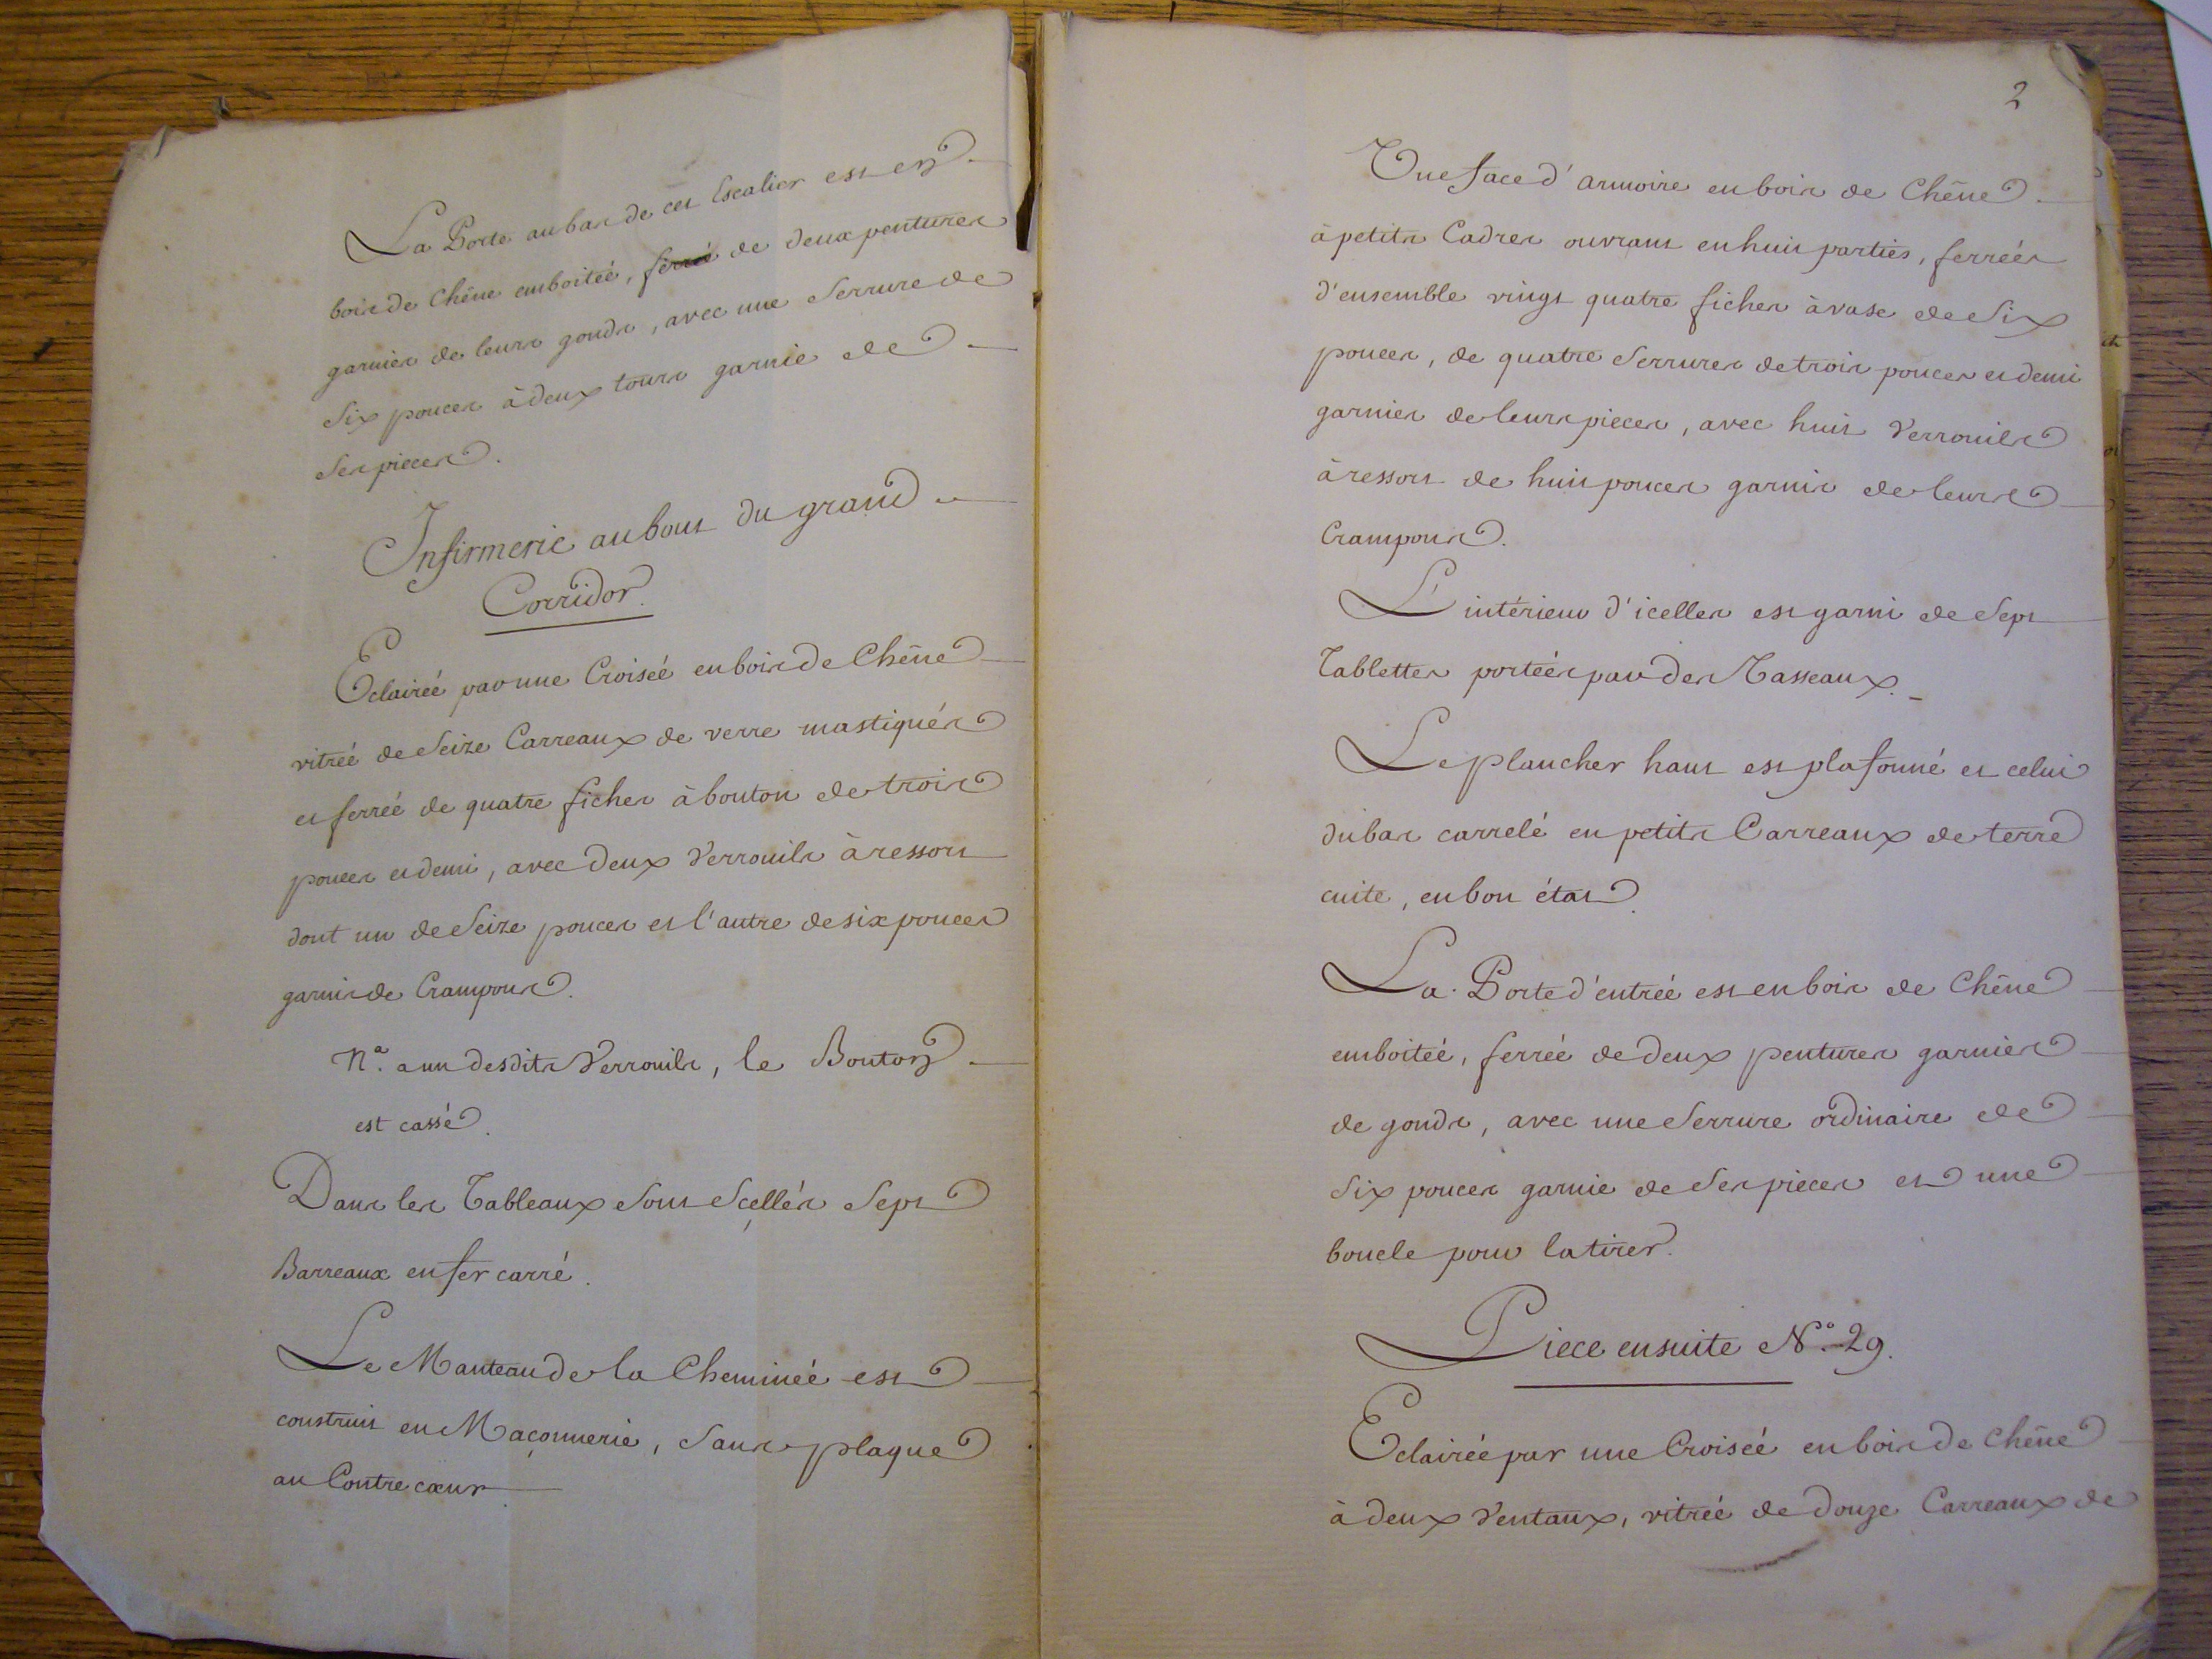 La Porte au bas de cet Escalier est en
bois de Chêne emboiteé, ferré de deux pentures
garnies de leurs gonds, avec une Serrure de
Six pouces à deux tours garnie de
Ses pieces.
Infirmerie au bout du grand
Corridor.
Eclaireé par une Croiseé en bois de Chêne
vitreé de Seize Carreaux de verre mastiqués
et ferreé de quatre fiches à bouton de trois
pouces et demi, avec deux Verrouils à ressort
dont un de Seize pouces et l'autre de six pouces
garnis de Crampons.
Nª. a un desdits Verrouils, le Bouton
est cassé.
Dans les Tableaux Sont Scellés Sept
Barreaux en fer carré.
Le Manteau de la Chemineé est
construit en Maçonnerie, Sans plaque
au Contre cœur.
2
Une face d'armoire en bois de Chêne
à petits Cadres ouvrant en huit parties, ferreés
d'ensemble vingt quatre fiches à vase de Six
pouces, de quatre Serrures de trois pouces et demi
garnies de leurs pieces, avec huit Verrouils
à ressort de huit pouces garnis de leurs
Crampons.
L'intérieur d'icelles est garni de Sept
Tablettes porteés par des Tasseaux.
Le plancher haut est plafonné et celui
du bas carrelé en petits Carreaux de terre
cuite, en bon état.
La Porte d'entreé est en bois de Chêne
emboiteé, ferreé de deux pentures garnies
de gonds, avec une Serrure ordinaire de
Six pouces garnie de Ses pieces et une
boucle pour la tirer.
Piece ensuite N.º 29.
Eclaireé par une Croiseé en bois de Chêne
à deux Ventaux, vitreé de douze Carreaux de